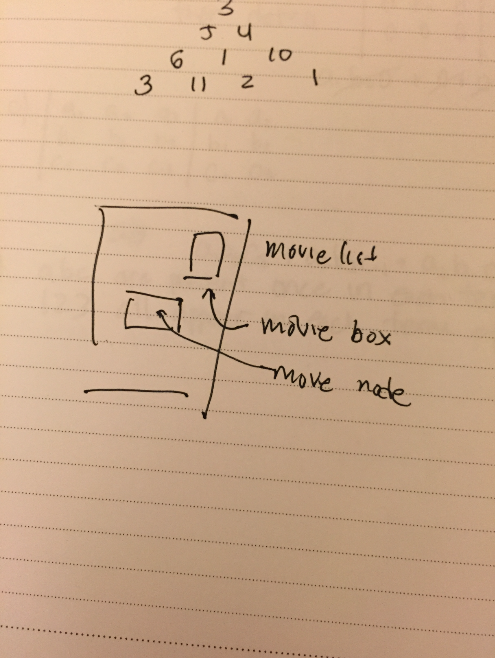 3
5 4
6 1 10
3 11 2 1
movie list
movie box
move node